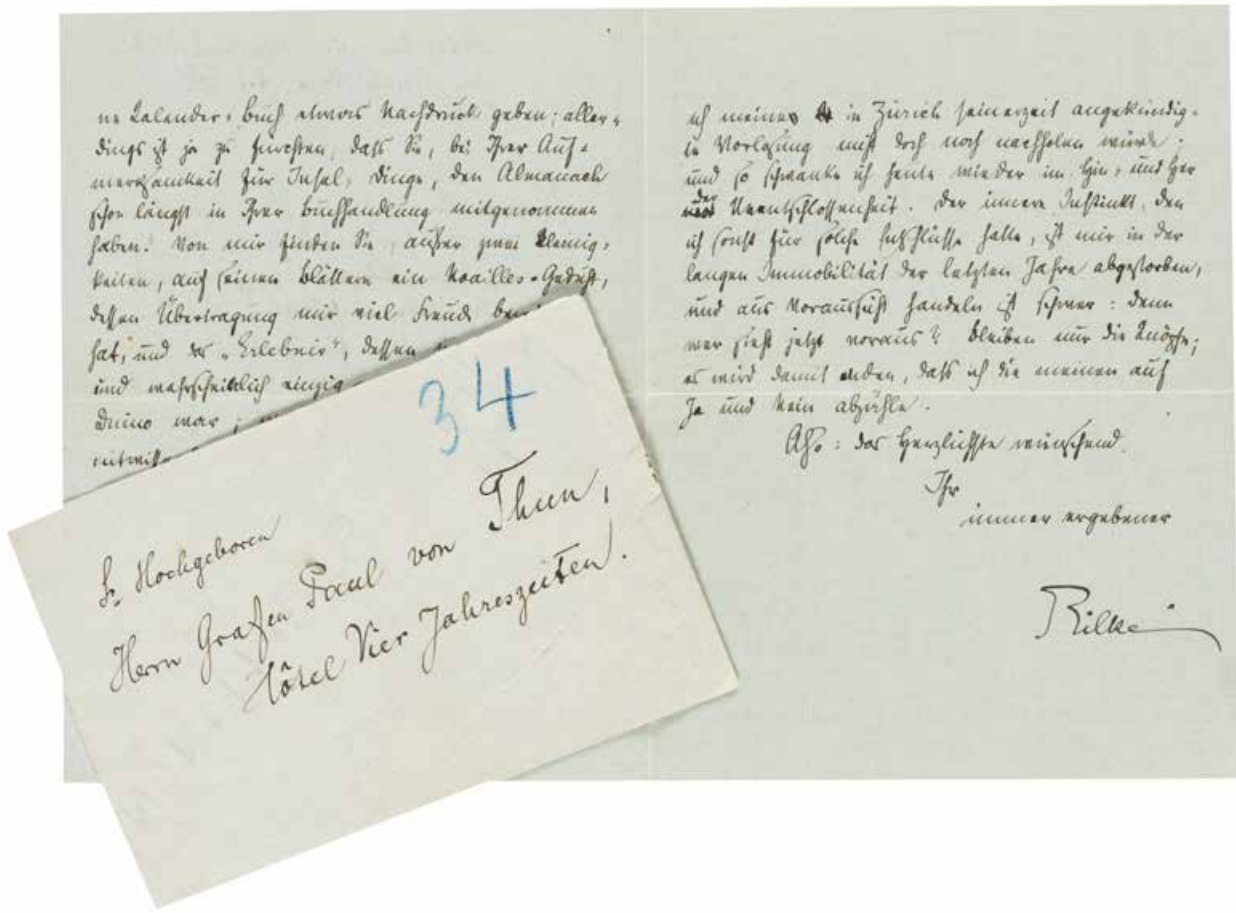 ne Kalender-Buch etwas Nachdruck geben; aller-
dings ist ja zu fürchten, daß Sie, bei Ihrer Auf-
merksamkeit für Insel-Dinge, den Almanach
schon längst in Ihrer Buchhandlung mitgenommen
haben. Von mir finden Sie, außer zwei Kleinig-
keiten, auf seinen Blättern ein Noailles-Gedicht,
dessen Übertragung mir viel Freude
hat, und das „Erlebnis“, dessen
und wahrscheinlich einzig
Duino war;
ich meine in Zürich seinerzeit angekündig-
te Vorlesung nicht doch noch nachholen würde.
und so schwanke ich heute wieder im Hin- und Her
der Unentschlossenheit. Der innere Instinkt, den
ich sonst für solche Entschlüsse hatte, ist mir in der
langen Immobilität der letzten Jahre abgestorben,
und aus Voraussicht handeln ist schwer: denn
wer sieht jetzt voraus? Bleiben nur die Knöpfe;
es wird damit enden, daß ich die meinen auf
Ja und Nein abzähle.
Also: das Herzlichste wünschend.
Ihr
immer ergebener
Rilke
34
Sr Hochgeboren
Herrn Grafen Paul von Thun,
Hôtel Vier Jahreszeiten.